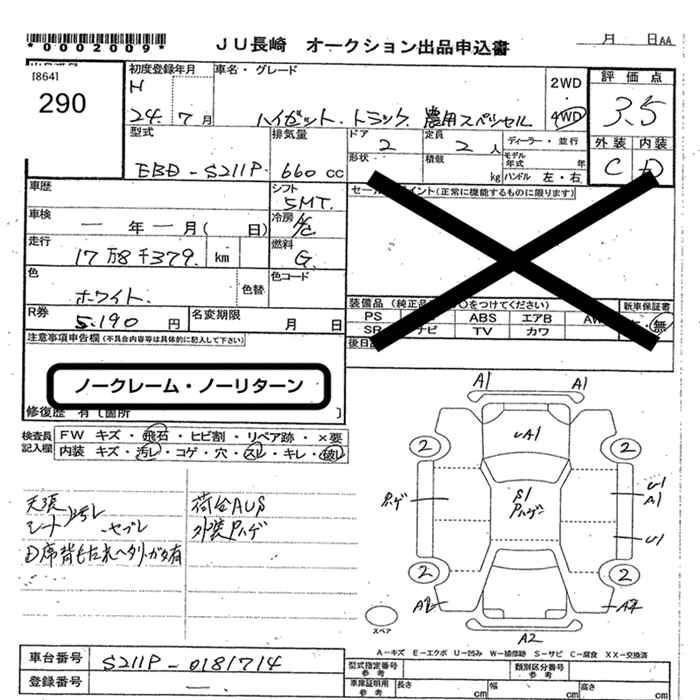 *0002009*
JU長崎 オークション出品申込書
月 日AA
[864]
290
初度登録年月
H
24. 7 月
車名・グレード
ハイゼット.トラック.農用スペシャル
2WD
・
4WD
評価点
3.5
外装 内装
C D
型式
EBD-S211P
排気量
660 CC
ドア
2
定員
2 人
ディーラー・並行
形状
積載
kg
モデル
年式 年
ハンドル 左・右
車歴
シフト
5MT.
車検
一 年 一 月( 日)
冷房
A/C
走行
17万8千379. km
燃料
G.
色
ホワイト.
色替
色コード
R券
5.190 円
名変期限
月 日
イント(正常に機能するものに限ります)
装備品
をつけてください)
PS
ABS
エアB
ナビ
TV
カワ
新車保証書
・無
注意事項申告欄(不具合内容等は具体的に記入して下さい)
ノークレーム・ノーリターン
修復歴 有[箇所 ]
検査員
記入欄
FW キズ・飛石・ヒビ割・リペア跡・×要
内装 キズ・汚レ・コゲ・穴・スレ・キレ・破レ
天張
シート 汚レ
ヤブレ
荷台AUS
外装Pハゲ
A1 A1
UA1
2 2
Pハゲ
S1
Pハゲ
U1
A1
U1
2 2
A2 A2
A2
スペア
A-キズ E-エクボ U-凹み W-補修跡 S-サビ C-腐食 XX-交換済
車台番号
S211P-0181714
登録番号
一
型式指定番号
参考
類別区分番号
参考
車庫証明用
参考
長さ cm
幅 cm
高さ cm